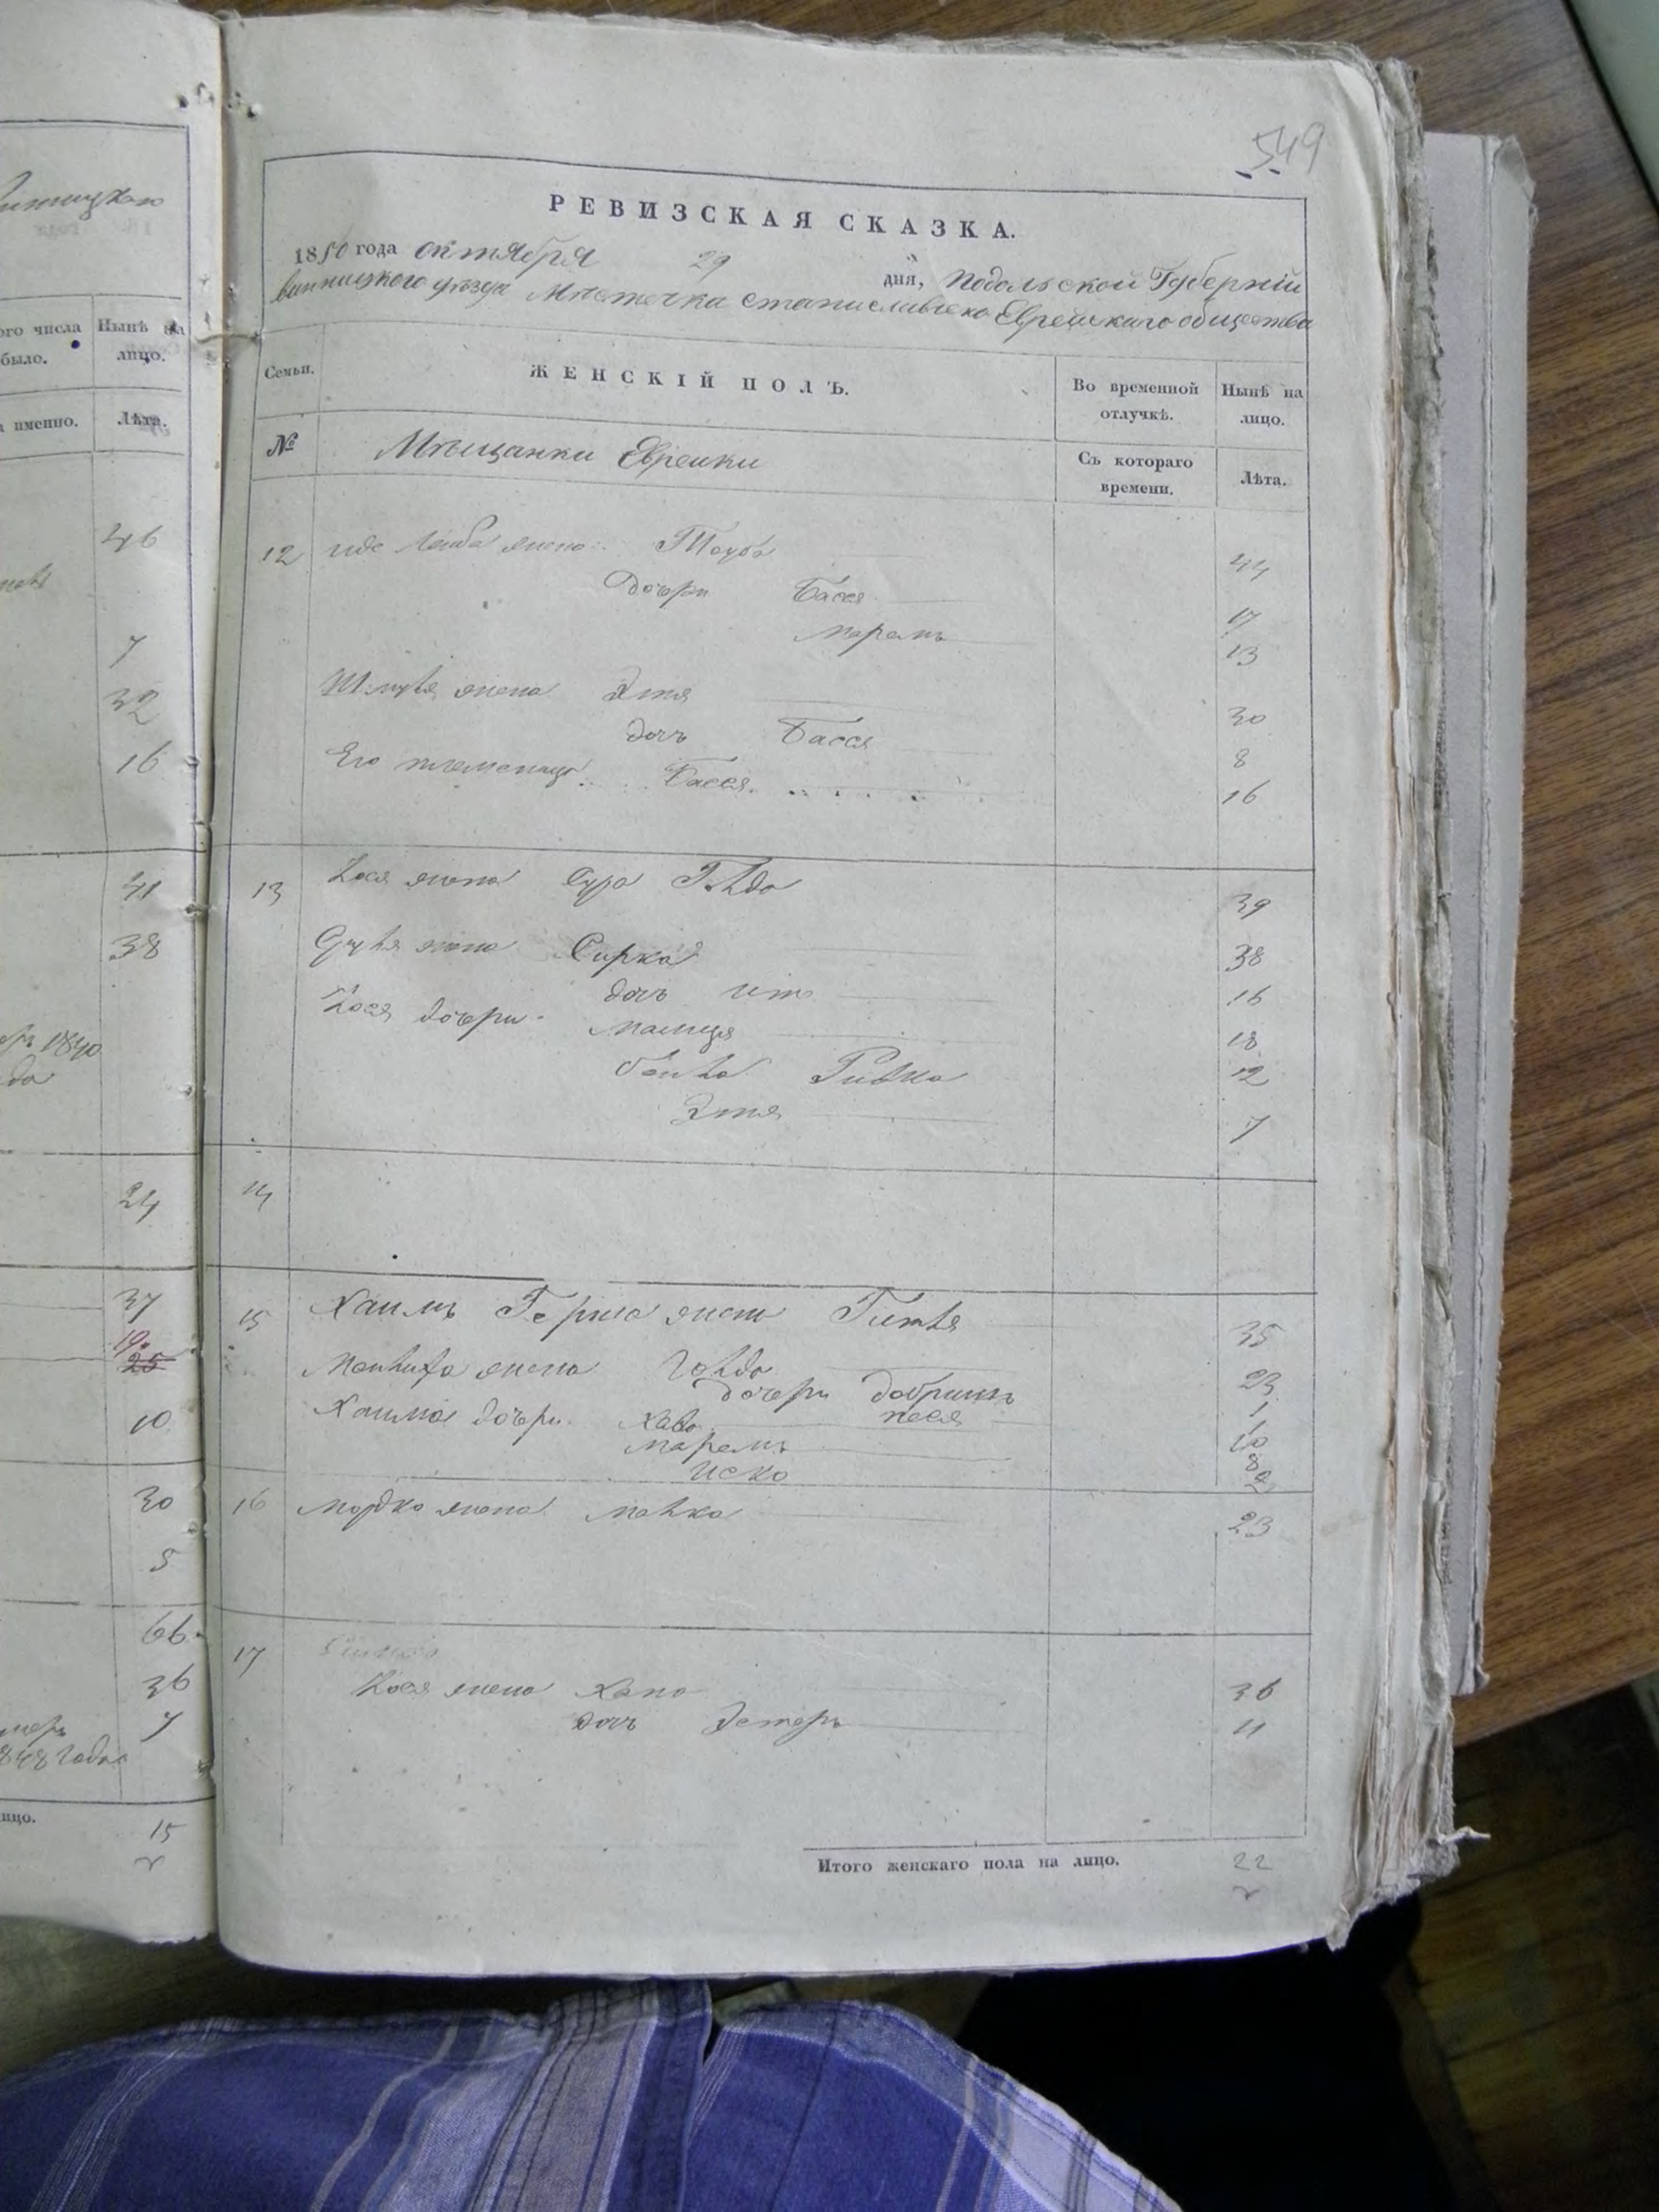 549
РЕВИЗСКАЯ СКАЗКА.
1850 года октября 29 дня, Подольской Губерніи
винницкого уѣзда Мѣстечка Станиславчека Еврейскаго общества
Семьи. ЖЕНСКІЙ ПОЛЪ. Во временной отлучкѣ. Нынѣ на лицо.
№ Мѣщанки Еврейки Съ котораго времени. Лѣта.
12 Лейба жена Тауба 44
Дочери Бася 17
Маремъ 13
Шмуля жена Этя 30
дочь Бася 8
Его племеница Бася 16
13 жена Сура Гольда 39
жена Сирка 38
дочь 16
дочери Малиця 18
Бейла Ривка 12
Этя 7
14
15 Хаимъ Герша жена Гитля 35
жена Голда 23
дочери Добришъ 1
Песя 1
Хаима дочери Хава 10
Маремъ 8
Иска 2
16 Мордка жена Малка 23
17
жена Хана 36
дочь Эстеръ 11
Итого женскаго пола на лицо. 22
ого числа было. Нынѣ на лицо.
именно. Лѣта.
46
7
32
16
41
38
1840
24
37
19
25
10
30
5
66
36
7
848 Года
лицо. 15